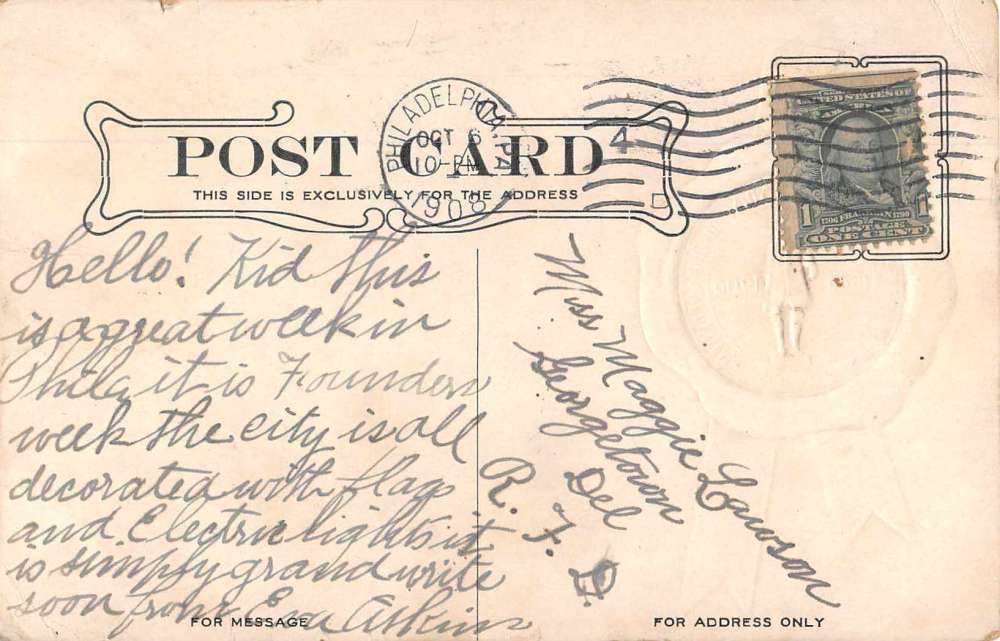 POST CARD
THIS SIDE IS EXCLUSIVELY FOR THE ADDRESS
PHILADELPHIA, PA.
OCT 6
10-PM
1908
4
UNITED STATES OF
AMERICA
1
1706 FRANKLIN 1790
POSTAGE
ONE CENT
Hello! Kid this
is a great week in
Phila, it is Founders
week the city is all
decorated with flags
and Electric lights it
is simply grand write
soon from Eva Atkins
Miss Maggie Lawson
Georgetown
Del
R. F. D.
FOR MESSAGE
FOR ADDRESS ONLY